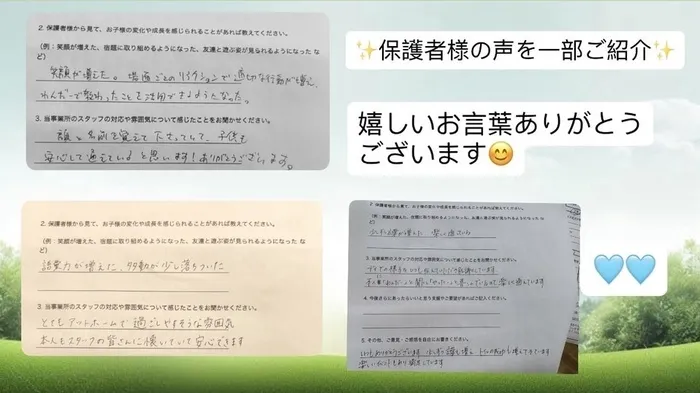 ✨保護者様の声を一部ご紹介✨
嬉しいお言葉ありがとう
ございます😊
2. 保護者様から見て、お子様の変化や成長を感じられることがあれば教えてください。
(例:笑顔が増えた、宿題に取り組めるようになった、友達と遊ぶ姿が見られるようになった など)
笑顔が増えた。場面ごとのリアクションで適切な行動が増え、
わんだーで教わったことを活用できるようなった。
3. 当事業所のスタッフの対応や雰囲気について感じたことをお聞かせください。
顔と名前を覚えて下さっていて、子供も
安心して通えていると思います!ありがとうございます。
2. 保護者様から見て、お子様の変化や成長を感じられることがあれば教えてください。
(例:笑顔が増えた、宿題に取り組めるようになった、友達と遊ぶ姿が見られるようになった など)
語彙力が増えた、多動が少し落ちついた
3. 当事業所のスタッフの対応や雰囲気について感じたことをお聞かせください。
とてもアットホームで過ごしやすそうな雰囲気
本人もスタッフの皆さんに懐いていて安心できます
2. 保護者様から見て、お子様の変化や成長を感じられることがあれば教えてください。
(例:笑顔が増えた、宿題に取り組めるようになった、友達と遊ぶ姿が見られるようになった など)
3. 当事業所のスタッフの対応や雰囲気について感じたことをお聞かせください。
4. 今後さらに良くなったらいいと思う支援やご要望があればご記入ください。
5. その他、ご意見・ご感想を自由にお書きください。
いつもありがとうございます